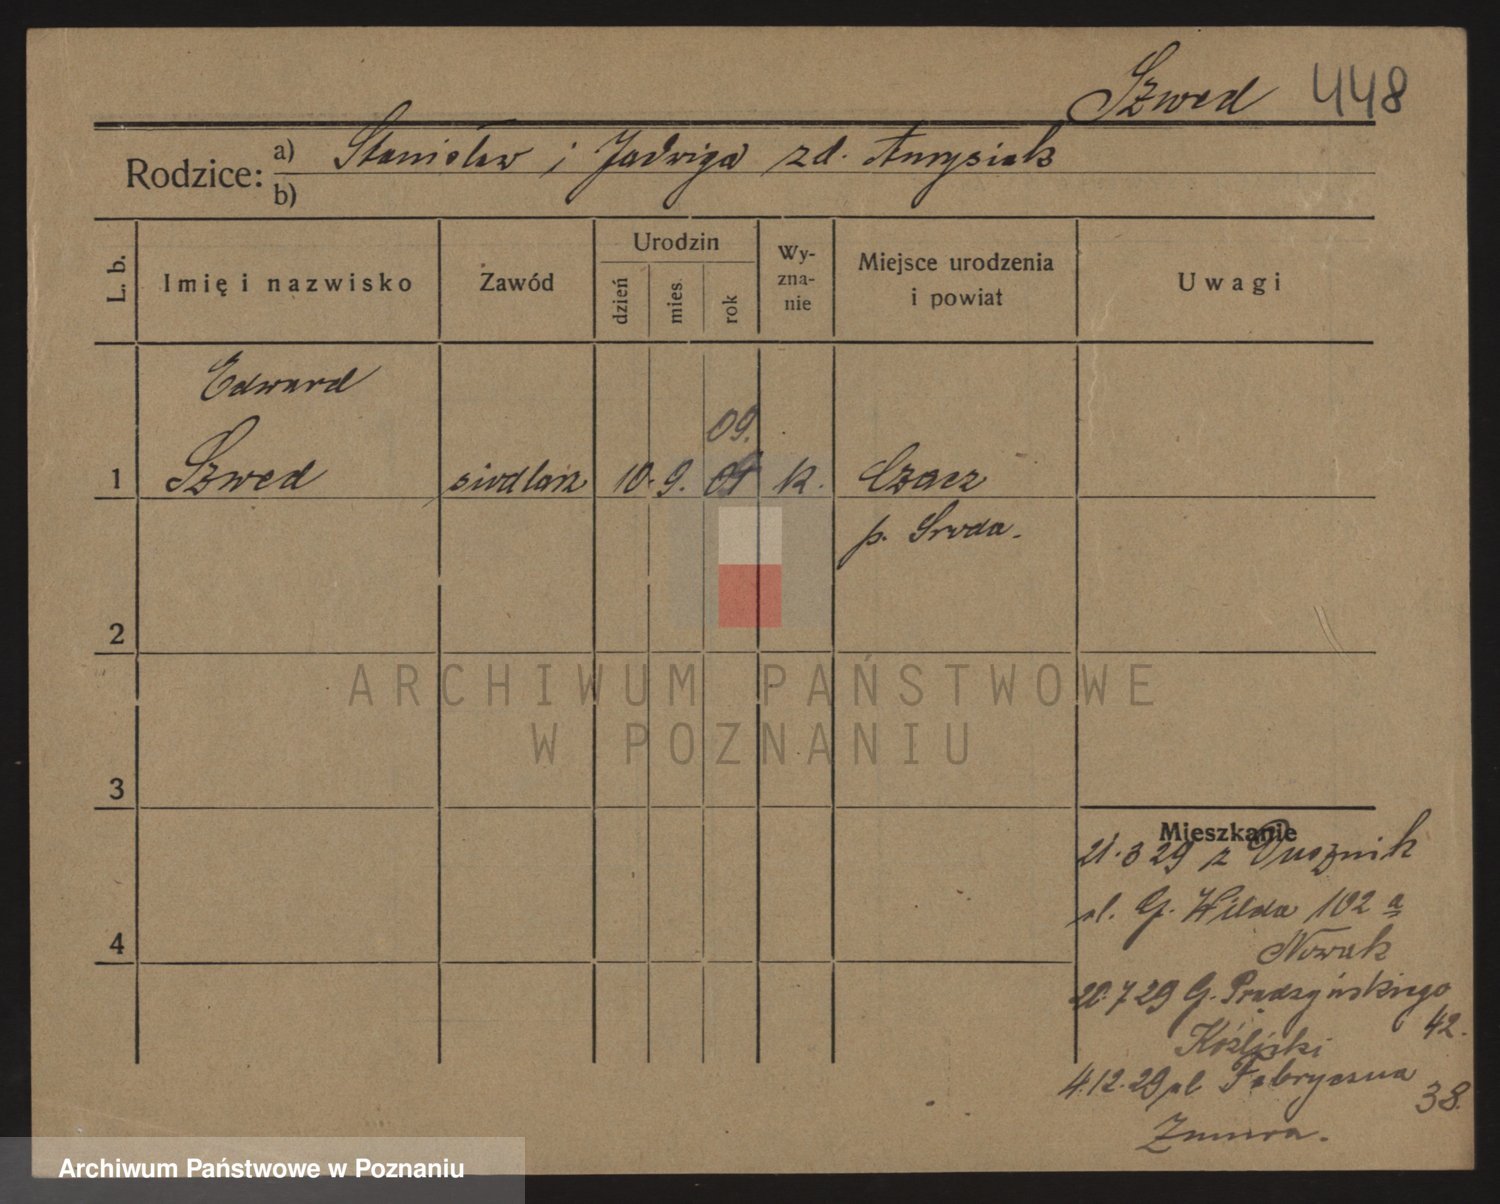 Szwed 448
Rodzice: a) Stanisław i Jadwiga zd. Amysiak
b)
L. b. Imię i nazwisko Zawód Urodzin dzień mies. rok Wy-zna-nie Miejsce urodzenia i powiat Uwagi
Edward
09.
1 Szwed siodlarz 10. 9. k. Czacz
p. Sroda.
2
ARCHIWUM PAŃSTWOWE
W POZNANIU
3
Mieszkanie
21.3 29 z Dusznik
ul. G. Wilda 102 a
Nowak
20.7 29 G. Prądzyńskiego
42.
4
4.12.29 ul Fabryczna
38.
Archiwum Państwowe w Poznaniu